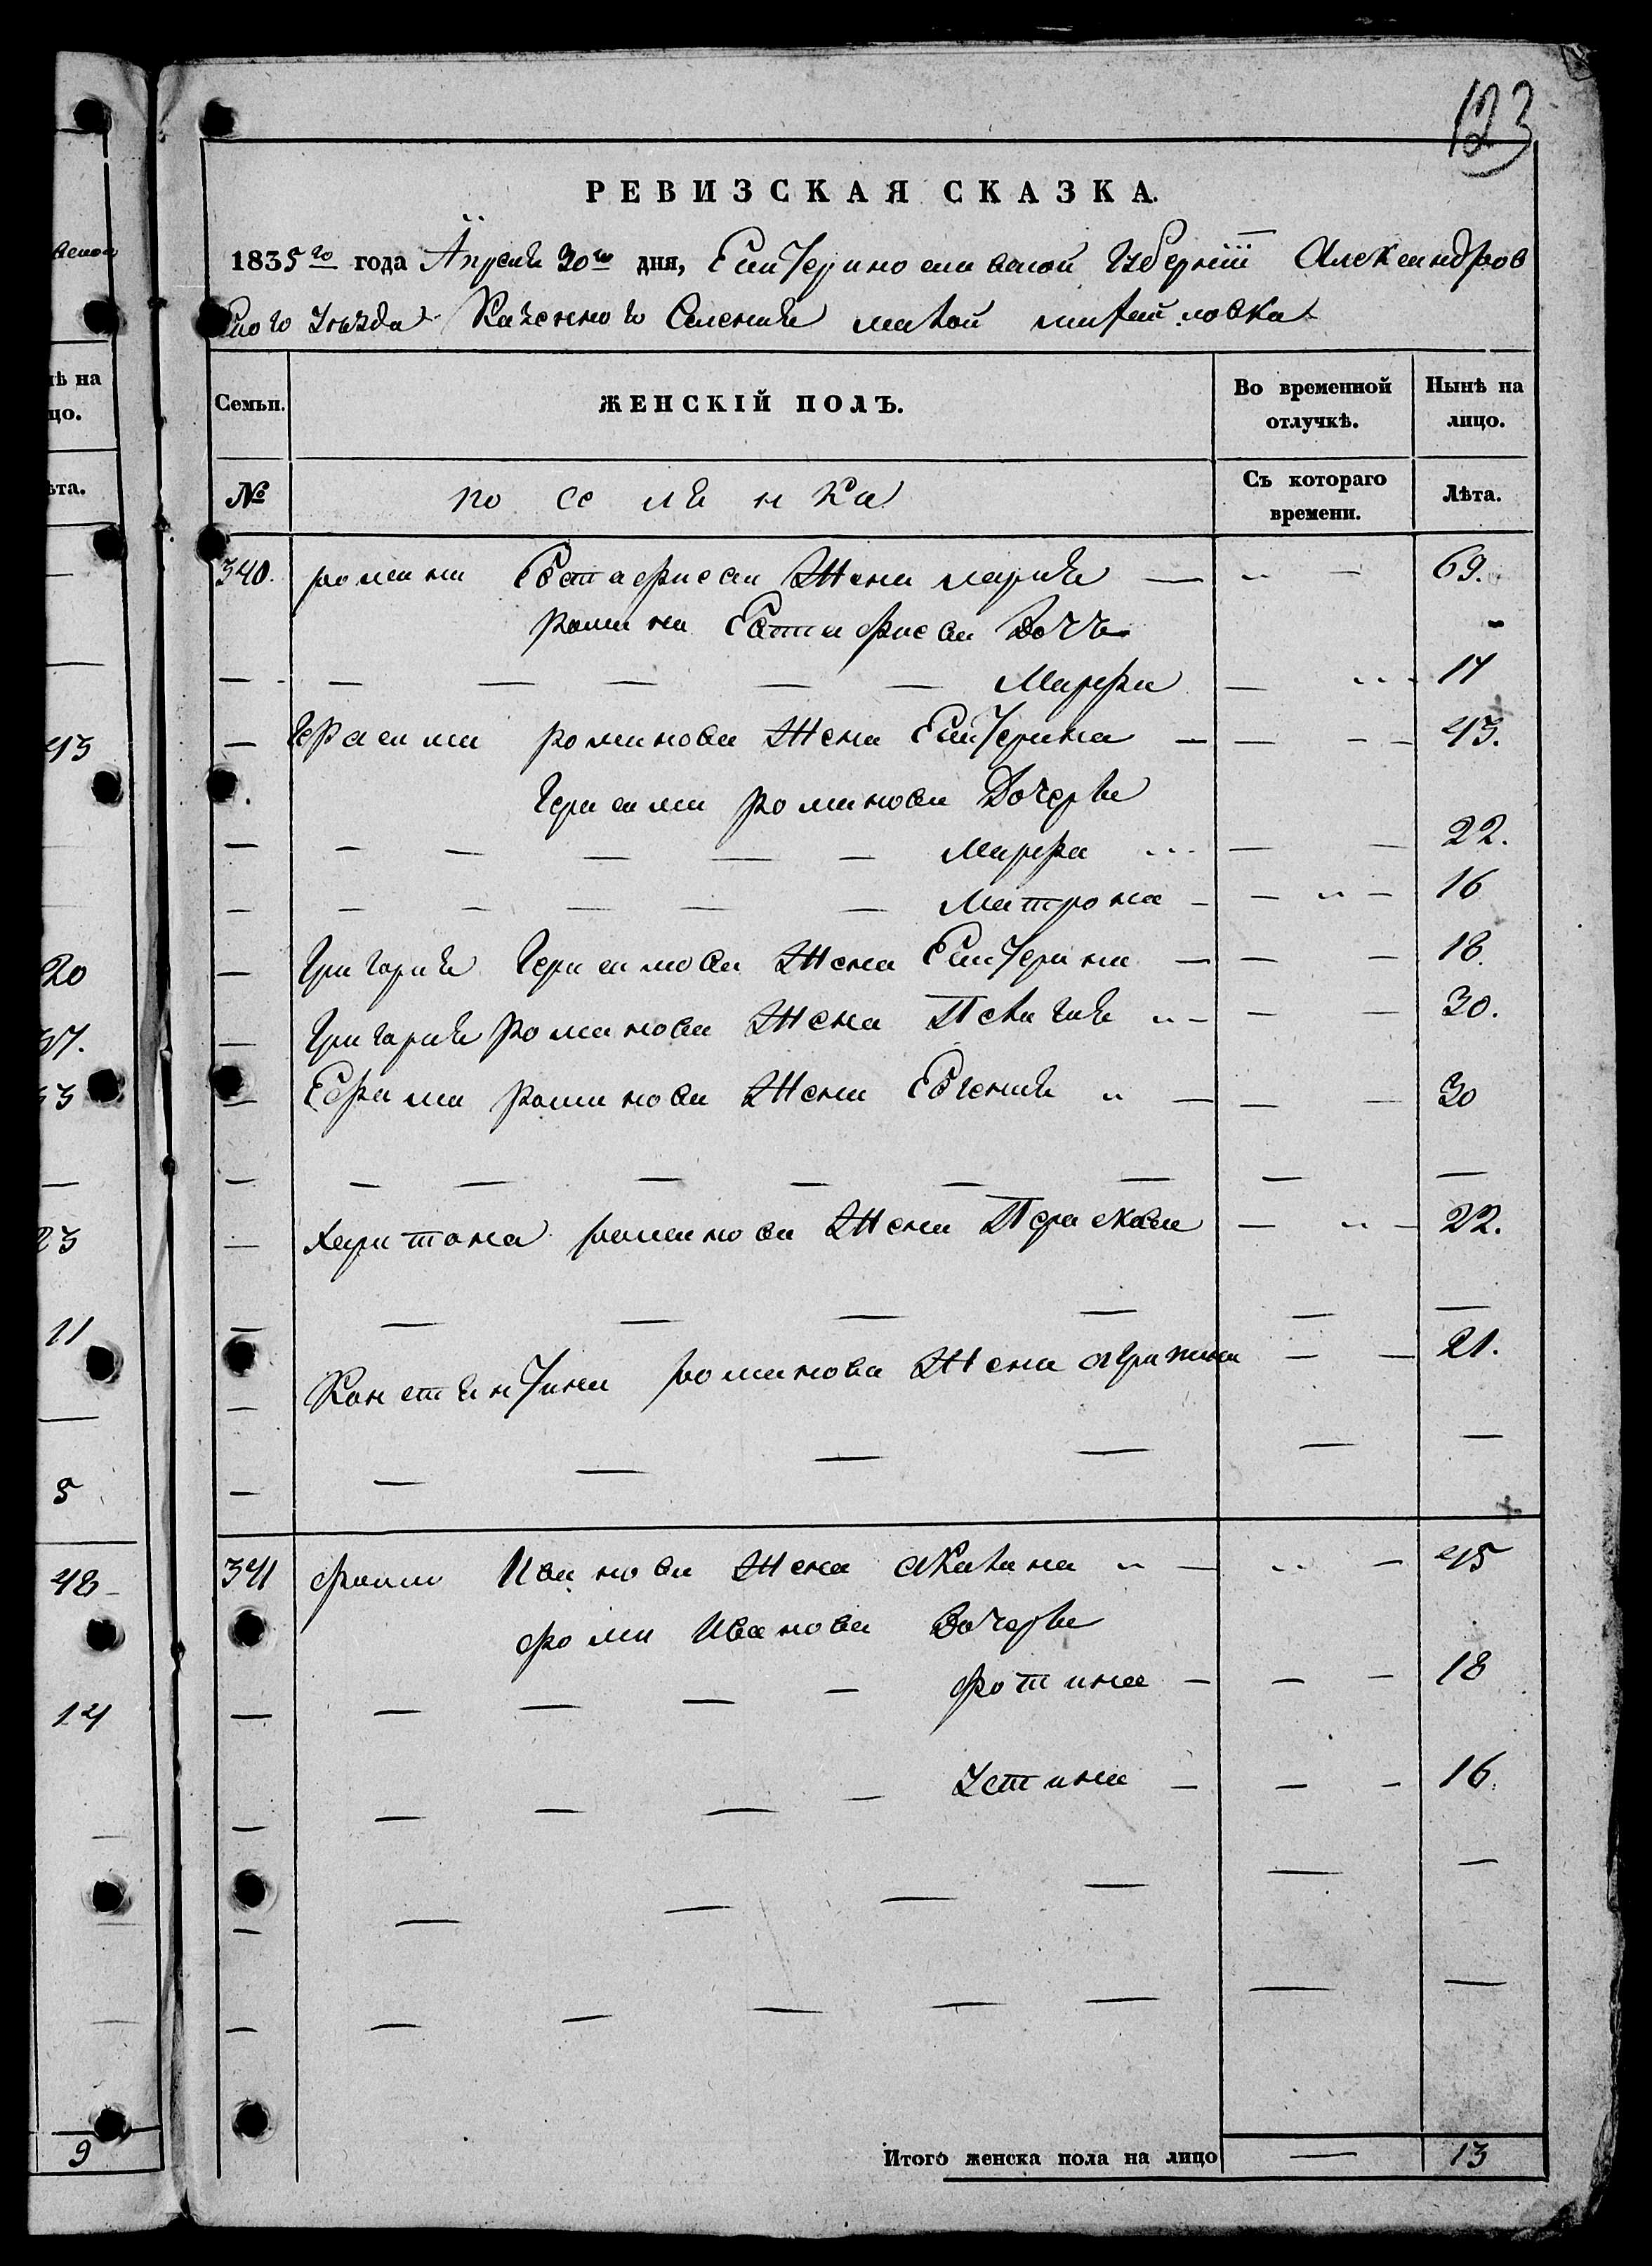 123
РЕВИЗСКАЯ СКАЗКА.
1835го года Апреля 30го дня, Екатеринославской Губернiи Александров
ского Уезда Казенного Селения малой михайловка
Семьи. ЖЕНСКІЙ ПОЛЪ. Во временной отлучкѣ. Нынѣ на лицо.
№ поселянка Съ котораго времени. Лѣта.
340. романа Евстафиева Жена мария — — 69.
романа Евстафиева Дочь
— — — — — — Марфа — 14
— Герасима романова Жена Екатерина — — — 43.
Герасима романова Дочерьи
— — — — — — марфа — — 22.
— — — — — — Матрона — — — 16
— Григория Герасимова Жена Екатерина — — — 18.
— Григория романова Жена Пелагия — — — 30.
— Ефрама романова Жена Евгения — — — 30
— — — — — — — — —
— Харитона романова Жена Параскева — — 22.
— — — — — — —
— Константина романова Жена — — 21.
— — — — — — —
341 фомы Иванова Жена акалина — — 45
фомы Иванова Дочерьи
— — — — — фотина — — — 18
— — — — — Устина — — — 16.
— — — — — — —
— — — — — — — —
Итого женска пола на лицо — 13
нѣ на
цо.
ѣта.
43
20
23
11
5
48
14
9